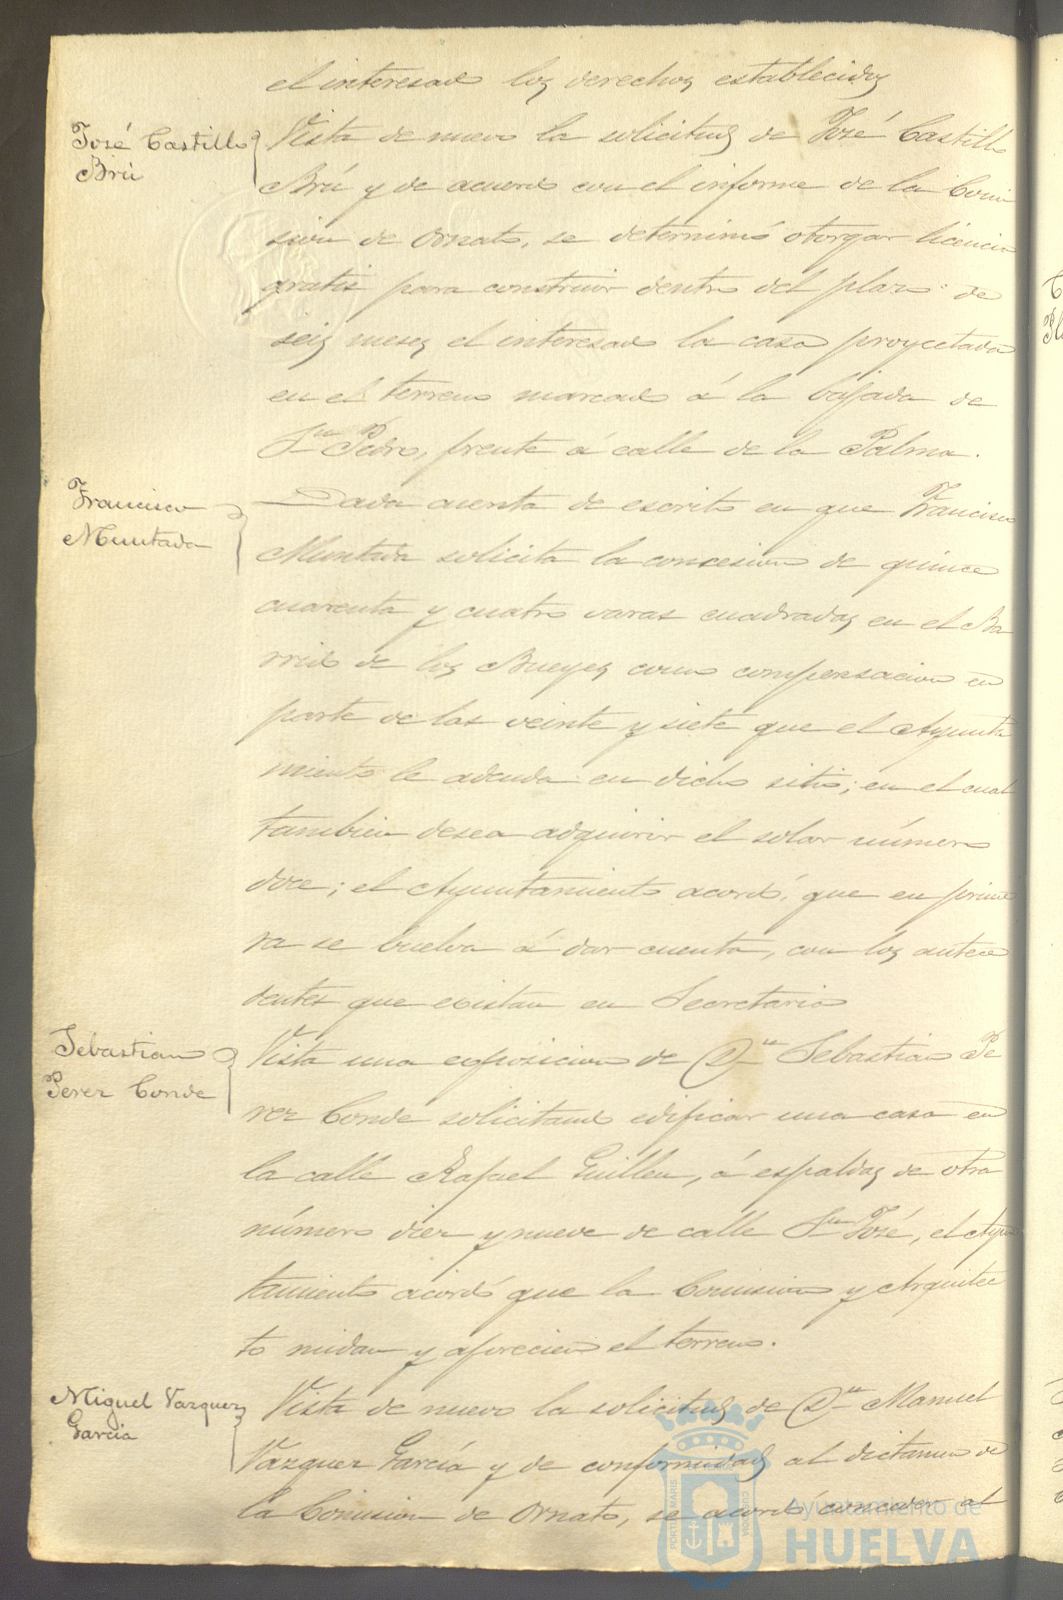 el interesado los derechos establecidos
José Castillo
Brú
Vista de nuevo la solicitud de José Castillo
Brú y de acuerdo con el informe de la Comi
sion de Ornato, se determinó otorgar licencia
gratis para construir dentro del plazo de
seis meses el interesado la casa proyectada
en el terreno marcado á la bajada de
Sn Pedro, frente á calle de la Palma.
Francisco
Muntada
Dada cuenta de escrito en que Francisco
Muntada solicita la concesion de quince
cuarenta y cuatro varas cuadradas en el Ba
rrio de los Bueyes como compensacion en
parte de las veinte y siete que el Ayunta
miento le adeuda en dicho sitio; en el cual
tambien desea adquirir el solar número
doce; el Ayuntamiento acordó, que en prime
ra se buelva á dar cuenta, con los antece
dentes que existan en Secretaria
Sebastian
Perez Conde
Vista una exposicion de Dn Sebastian Pe
rez Conde solicitando edificar una casa en
la calle Rafael Guillen, á espaldas de otra
número diez y nueve de calle Sn José, el Ayun
tamiento acordó que la Comision y Arquitec
to midan y aprecien el terreno.
Miguel Vazquez
Garcia
Vista de nuevo la solicitud de Dn Manuel
Vazquez García y de conformidad al dictamen de
la Comision de Ornato, se acordó conceder al
PORTUS MARIS
CUSTODIA
Ayuntamiento de
HUELVA